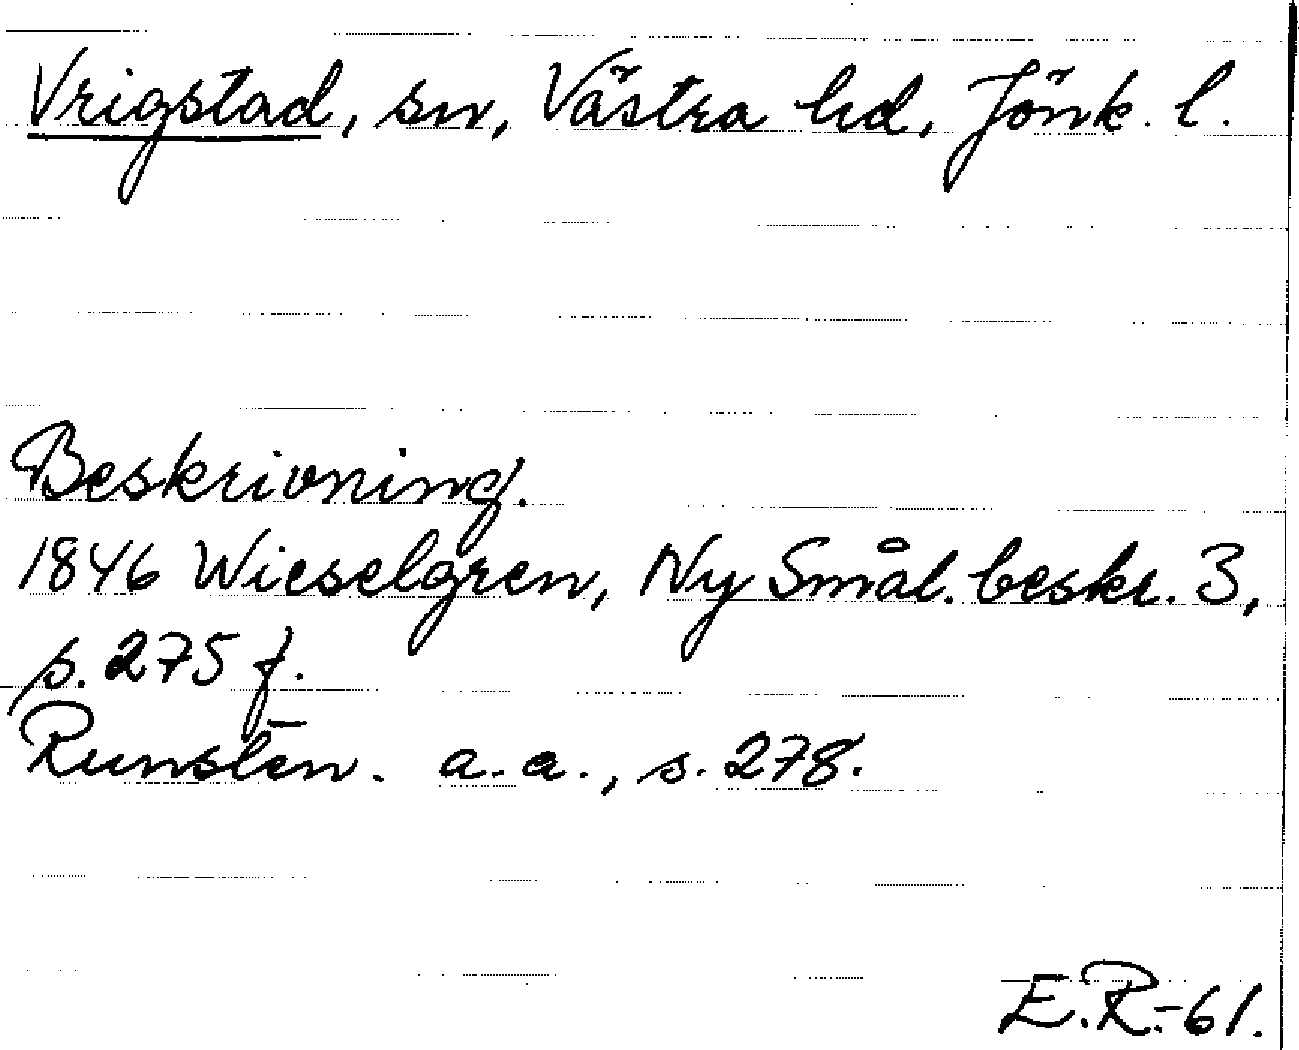 Vrigstad, sn, Västra hd, Jönk. l.
Beskrivning.
1846 Wieselgren, Ny Smål. beskr. 3,
s. 275 f.
Runsten. a.a., s. 278.
E.R.-61.